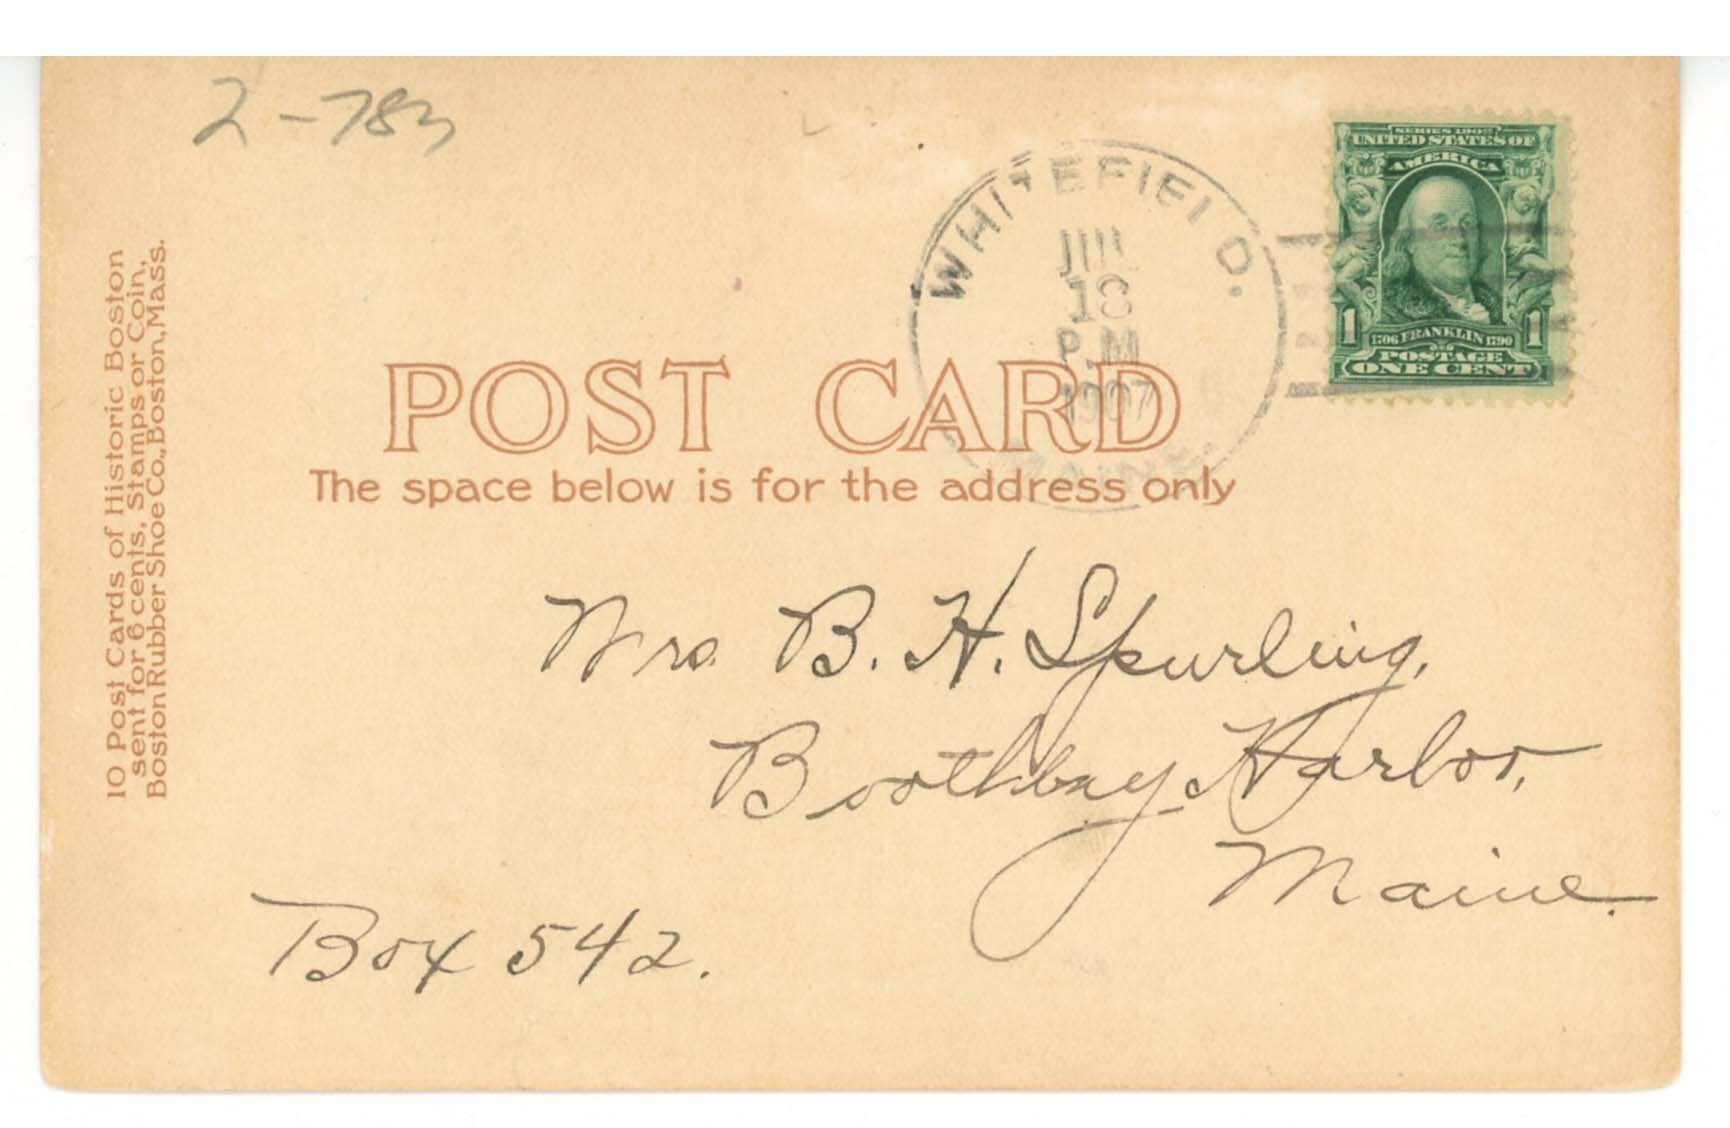 2-783
10 Post Cards of Historic Boston
sent for 6 cents, Stamps or Coin,
Boston Rubber Shoe Co., Boston, Mass.
WHITEFIELD.
18
P.M
1907
MAINE.
SERIES 1902
UNITED STATES OF
AMERICA
1 1706 FRANKLIN 1790 1
POSTAGE
ONE CENT
POST CARD
The space below is for the address only
Mrs. B. H. Spurling,
Boothbay Harbor,
Maine.
Box 542.